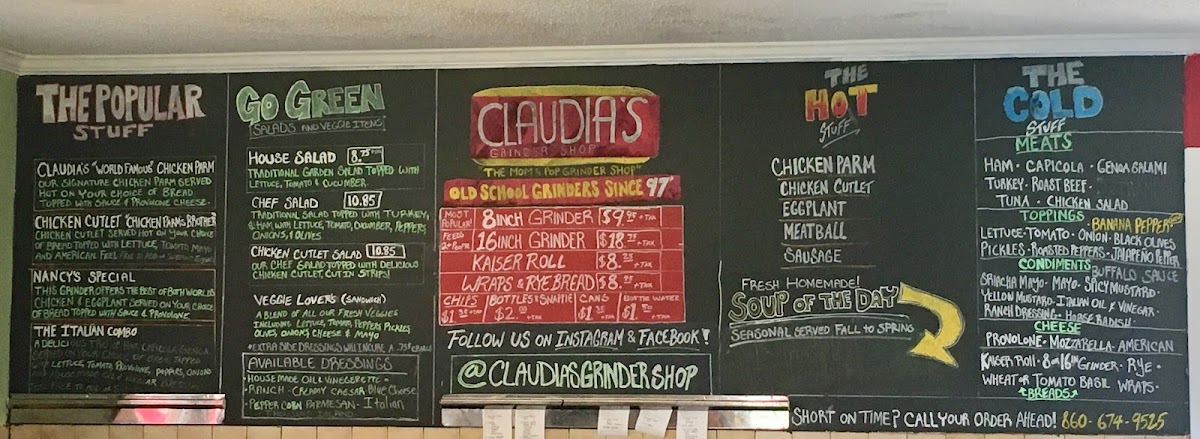 THE POPULAR
STUFF
CLAUDIA'S "WORLD FAMOUS" CHICKEN PARM
OUR SIGNATURE CHICKEN PARM SERVED
HOT ON YOUR CHOICE OF BREAD
TOPPED WITH SAUCE & PROVOLONE CHEESE.
CHICKEN CUTLET "CHICKEN PARM'S BROTHER"
CHICKEN CUTLET SERVED HOT ON YOUR CHOICE
OF BREAD TOPPED WITH LETTUCE, TOMATO, MAYO
AND AMERICAN
NANCY'S SPECIAL
THIS GRINDER OFFERS THE BEST OF BOTH WORLDS
CHICKEN & EGGPLANT SERVED ON YOUR CHOICE
OF BREAD TOPPED WITH SAUCE & PROVOLONE.
THE ITALIAN COMBO
A DELICIOUS TRIO OF HAM, CAPICOLA, GENOA
SERVED ON YOUR CHOICE OF BREAD TOPPED
WITH LETTUCE, TOMATO, PROVOLONE, PEPPERS, ONIONS
GO GREEN
SALADS AND VEGGIE ITEMS
HOUSE SALAD 8.75
TRADITIONAL GARDEN SALAD TOPPED WITH
LETTUCE, TOMATO & CUCUMBER.
CHEF SALAD 10.85
TRADITIONAL SALAD TOPPED WITH TURKEY,
& HAM WITH LETTUCE, TOMATO, CUCUMBER, PEPPERS,
ONIONS, & OLIVES
CHICKEN CUTLET SALAD 10.85
OUR CHEF SALAD TOPPED WITH DELICIOUS
CHICKEN CUTLET, CUT IN STRIPS!
VEGGIE LOVER'S (SANDWICH)
A BLEND OF ALL OUR FRESH VEGGIES
INCLUDING LETTUCE, TOMATO, PEPPERS, PICKLES,
OLIVES, ONIONS, CHEESE & MAYO
*EXTRA SIDE DRESSINGS WILL INCURE A .75¢ CHARGE
AVAILABLE DRESSINGS
HOUSE MADE OIL & VINEGERETTE -
- RANCH - CREAMY CAESAR Blue Cheese
PEPPER CORN PARMESAN - Italian
CLAUDIA'S
GRINDER SHOP
"THE MOM & POP GRINDER SHOP"
OLD SCHOOL GRINDERS SINCE 97'
MOST POPULAR! 8 INCH GRINDER $9 + TAX
FEEDS 2+ PEOPLE 16 INCH GRINDER $18 + TAX
KAISER ROLL $8. + TAX
WRAPS & RYE BREAD $8. + TAX
CHIPS BOTTLES & SNAPPLE CANS BOTTLE WATER
$1 + TAX $2 + TAX $1 + TAX $1 + TAX
FOLLOW US ON INSTAGRAM & FACEBOOK!
@CLAUDIASGRINDERSHOP
THE
HOT
STUFF
CHICKEN PARM
CHICKEN CUTLET
EGGPLANT
MEATBALL
SAUSAGE
FRESH HOMEMADE!
SOUP OF THE DAY
SEASONAL SERVED FALL TO SPRING
THE
COLD
STUFF
MEATS
HAM · CAPICOLA · GENOA SALAMI
TURKEY · ROAST BEEF ·
TUNA · CHICKEN SALAD
TOPPINGS BANANA PEPPER
LETTUCE · TOMATO · ONION · BLACK OLIVES
PICKLES · ROASTED PEPPERS · JALAPEÑO PEPPER
CONDIMENTS BUFFALO SAUCE
SRIACHA MAYO · MAYO · SPICY MUSTARD ·
YELLOW MUSTARD · ITALIAN OIL & VINEGAR ·
RANCH DRESSING · HORSE RADISH ·
CHEESE
PROVOLONE · MOZZARELLA · AMERICAN
KAISER ROLL · 8 OR 16 IN GRINDER · RYE ·
WHEAT OR TOMATO BASIL WRAPS ·
BREADS
SHORT ON TIME? CALL YOUR ORDER AHEAD! 860-674-9525